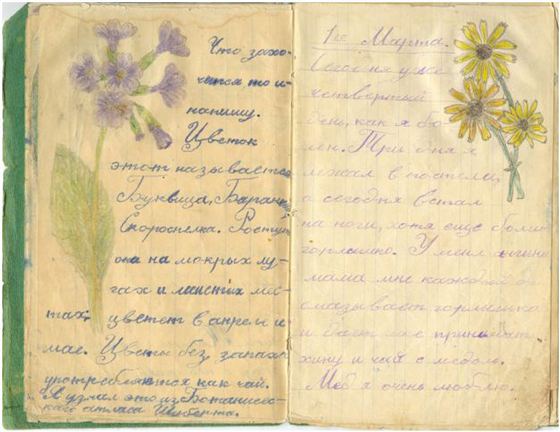 Что захо-
чится то и
напишу.
Цветок
этот называется
Буквица, Баранчик,
Скороспелка. Растут
она на мокрых лу-
гах и мшистых мес-
тах, цветет в апреле и
мае. Цветы без запаха
употребляются как чай.
Я узнал это из Ботаничес-
каго атласа Шуберта.
1ое Марта.
Сегодня уже
четвертый
день, как я бо-
лен. Три дня я
лежал в постели,
а сегодня встал
на ноги, хотя еще болит
горлышко. У меня ангина
мама мне каждый
смазывает горлышко
и дает мне принимать
хину и чай с медом.
Мед я очень люблю.